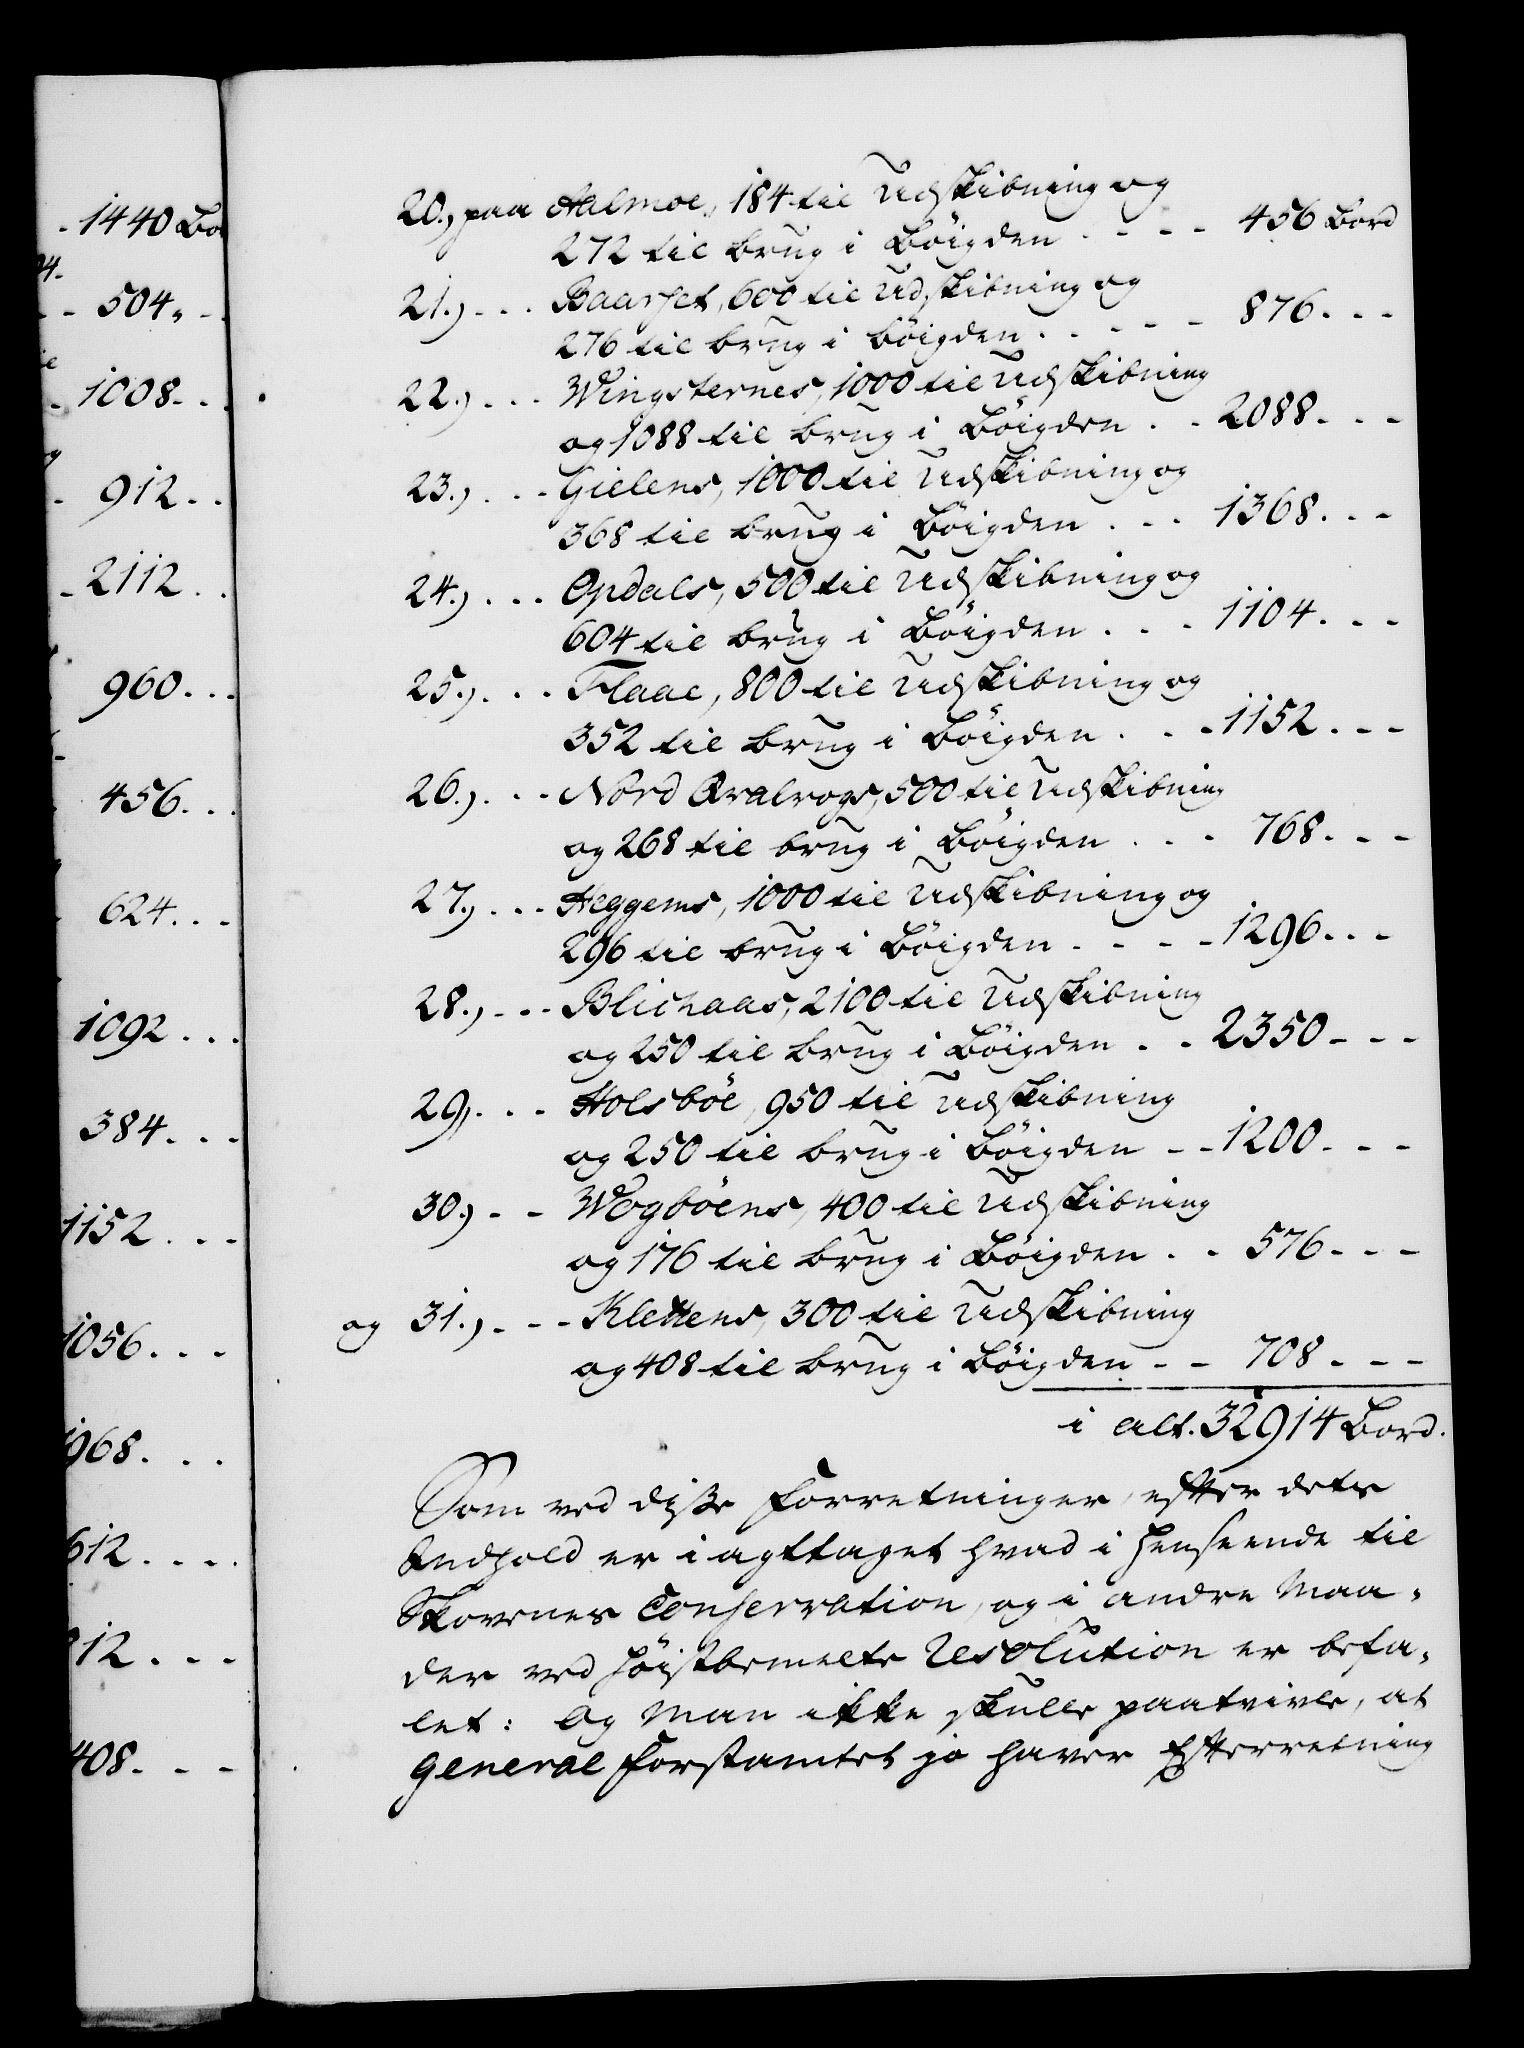 1440 Bo
504
1008
912
2112
960
456
624
1092
384
1152
1056
968
612
812
408
20.) paa Aalmoe, 184 til Udskibning og
272 til brug i Bøigden - - - - 456 Bord
21.) - - - Baarset, 600 til Udskibning og
276 til brug i bøigden - - - - - 876 - - -
22.) - - - Wingsternes, 1000 til Udskibning
og 1088 til brug i Bøigden - - 2088 - - -
23.) - - - Gielens, 1000 til Udskibning og
368 til brug i Bøigden - - - 1368 - - -
24.) - - - Opdals, 500 til Udskibning og
604 til brug i Bøigden - - - 1104 - - -
25.) - - - Flaae, 800 til Udskibning og
352 til brug i Bøigden - - - 1152 - - -
26.) - - - Nord 500 til Udskibning
og 268 til brug i Bøigden - - - 768 - - -
27.) - - - Heggems, 1000 til Udskibning og
296 til brug i Bøigden - - - - 1296 - - -
28.) - - - Blichaas, 2100 til Udskibning
og 250 til brug i Bøigden - - 2350 - - -
29.) - - - Holsbøe, 950 til Udskibning
og 250 til brug i Bøigden - - 1200 - - -
30.) - - Wogbøens, 400 til Udskibning
og 176 til brug i Bøigden - - 576 - - -
og 31.) - - - Klettens, 300 til Udskibning
og 408 til brug i Bøigden - - 708 - - -
i alt. 32914 Bord.
Som ved disse Forretninger, efter dets
Indhold er iagttaget hvad i Henseende til
Skovenes Conservation, og i andre Maa-
der ved høistbemelte Resolution er befa-
let: Og Man ikke skulle paatvivle, at
General Forstamtet jo haver Efterretning